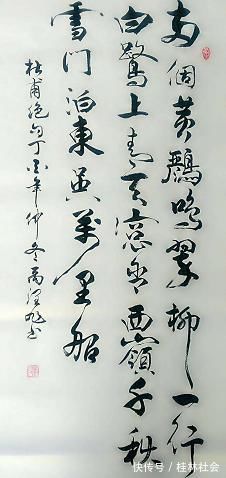 两個黄鸝鸣翠柳一行
白鹭上青天窗含西嶺千秋
雪门泊東吴萬里船
杜甫绝句丁酉年仲冬书
快传号/桂林社会